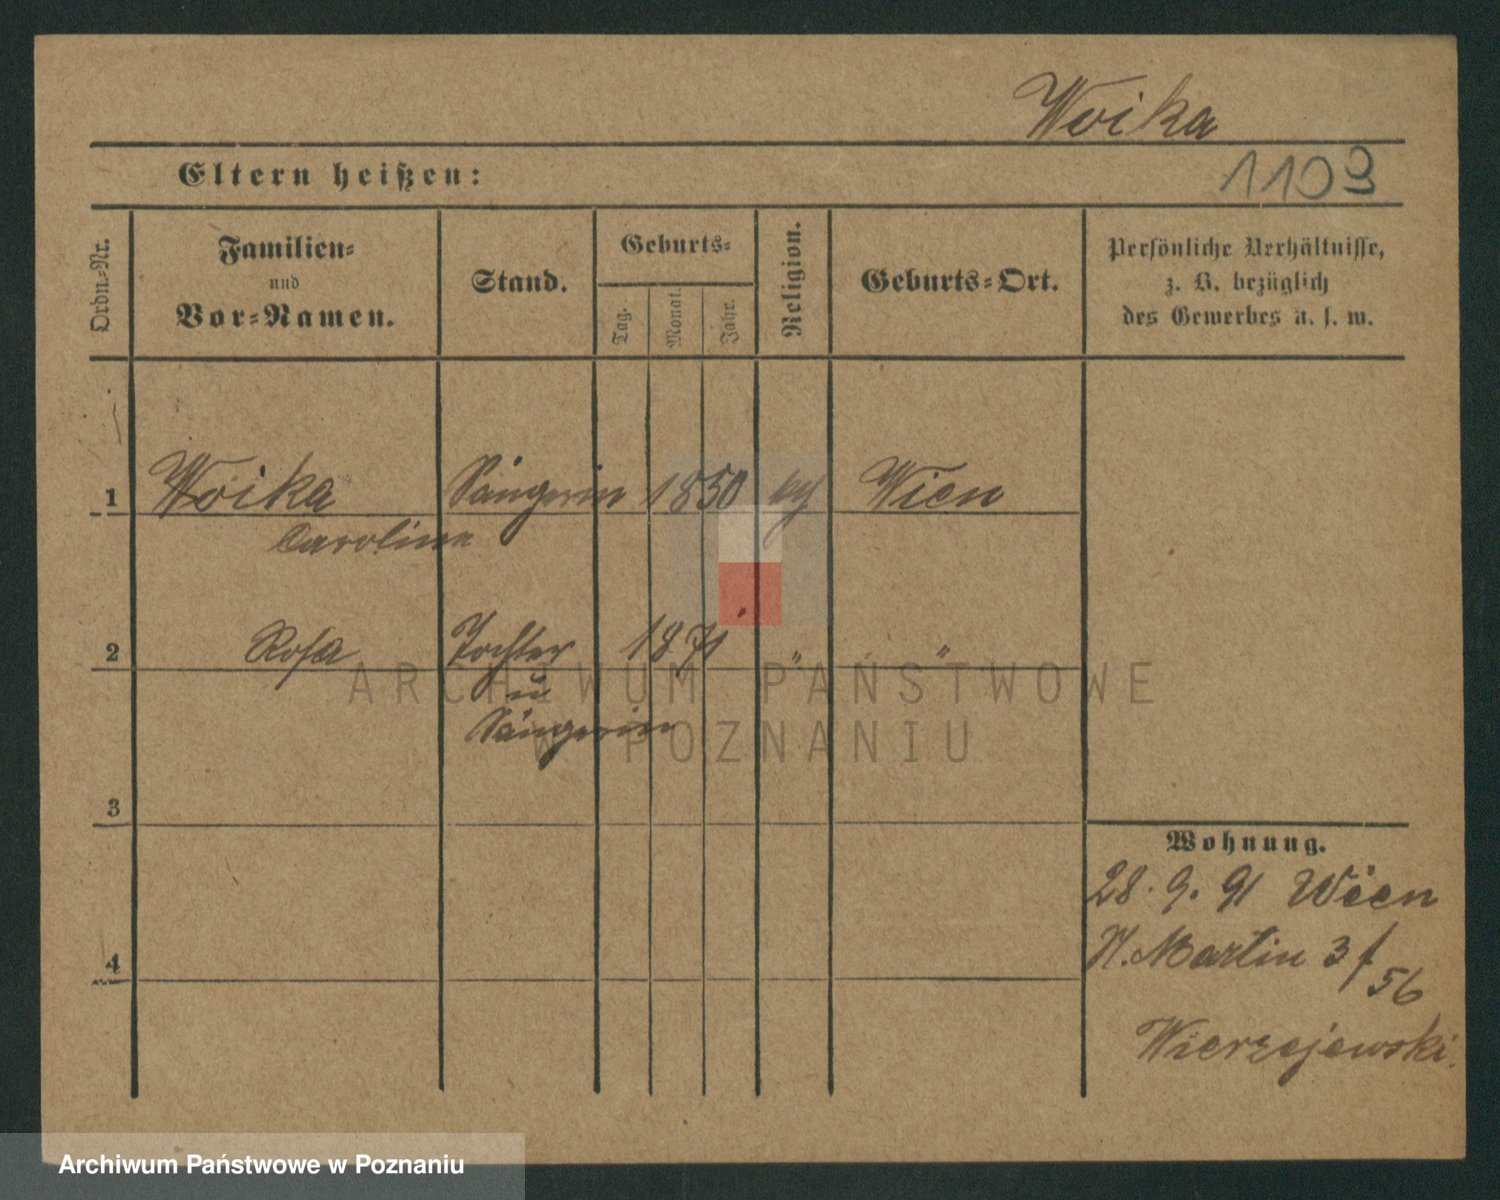 Woika
Eltern heißen:
1109
Ordn.-Nr.
Familien-
und
Vor-Namen.
Stand.
Geburts-
Tag.
Monat.
Jahr.
Religion.
Geburts-Ort.
Persönliche Verhältnisse,
z. B. bezüglich
des Gewerbes u. s. w.
1 Woika Sängerin 1850 Wien
Caroline
2 Rosa Tochter 1871 " "
u
Sängerin
3
4
Wohnung.
28. 9. 91 Wien
Martin 3/
56
Wierzejewski.
ARCHIWUM PAŃSTWOWE
W POZNANIU
Archiwum Państwowe w Poznaniu